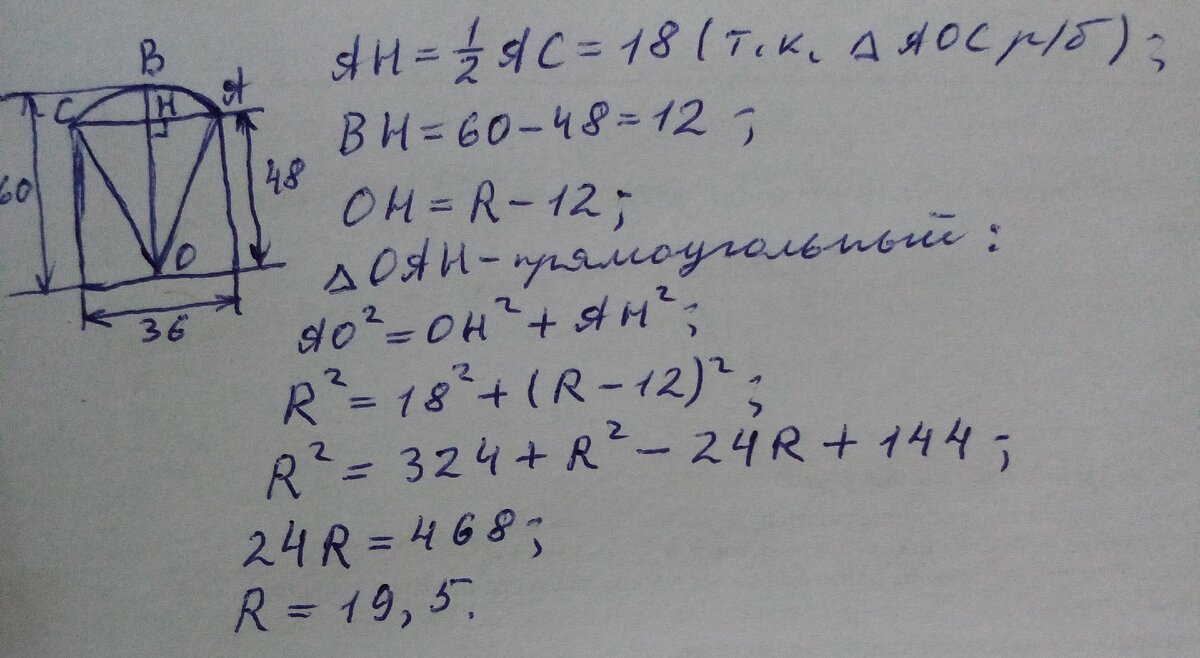 B
C
H
A
60
48
O
36
AH = 1/2 AC = 18 (т.к. △ AOC р/б);
BH = 60 - 48 = 12 ;
OH = R - 12 ;
△ OAH - прямоугольный :
AO² = OH² + AH² ;
R² = 18² + (R - 12)² ;
R² = 324 + R² - 24R + 144 ;
24R = 468 ;
R = 19,5.